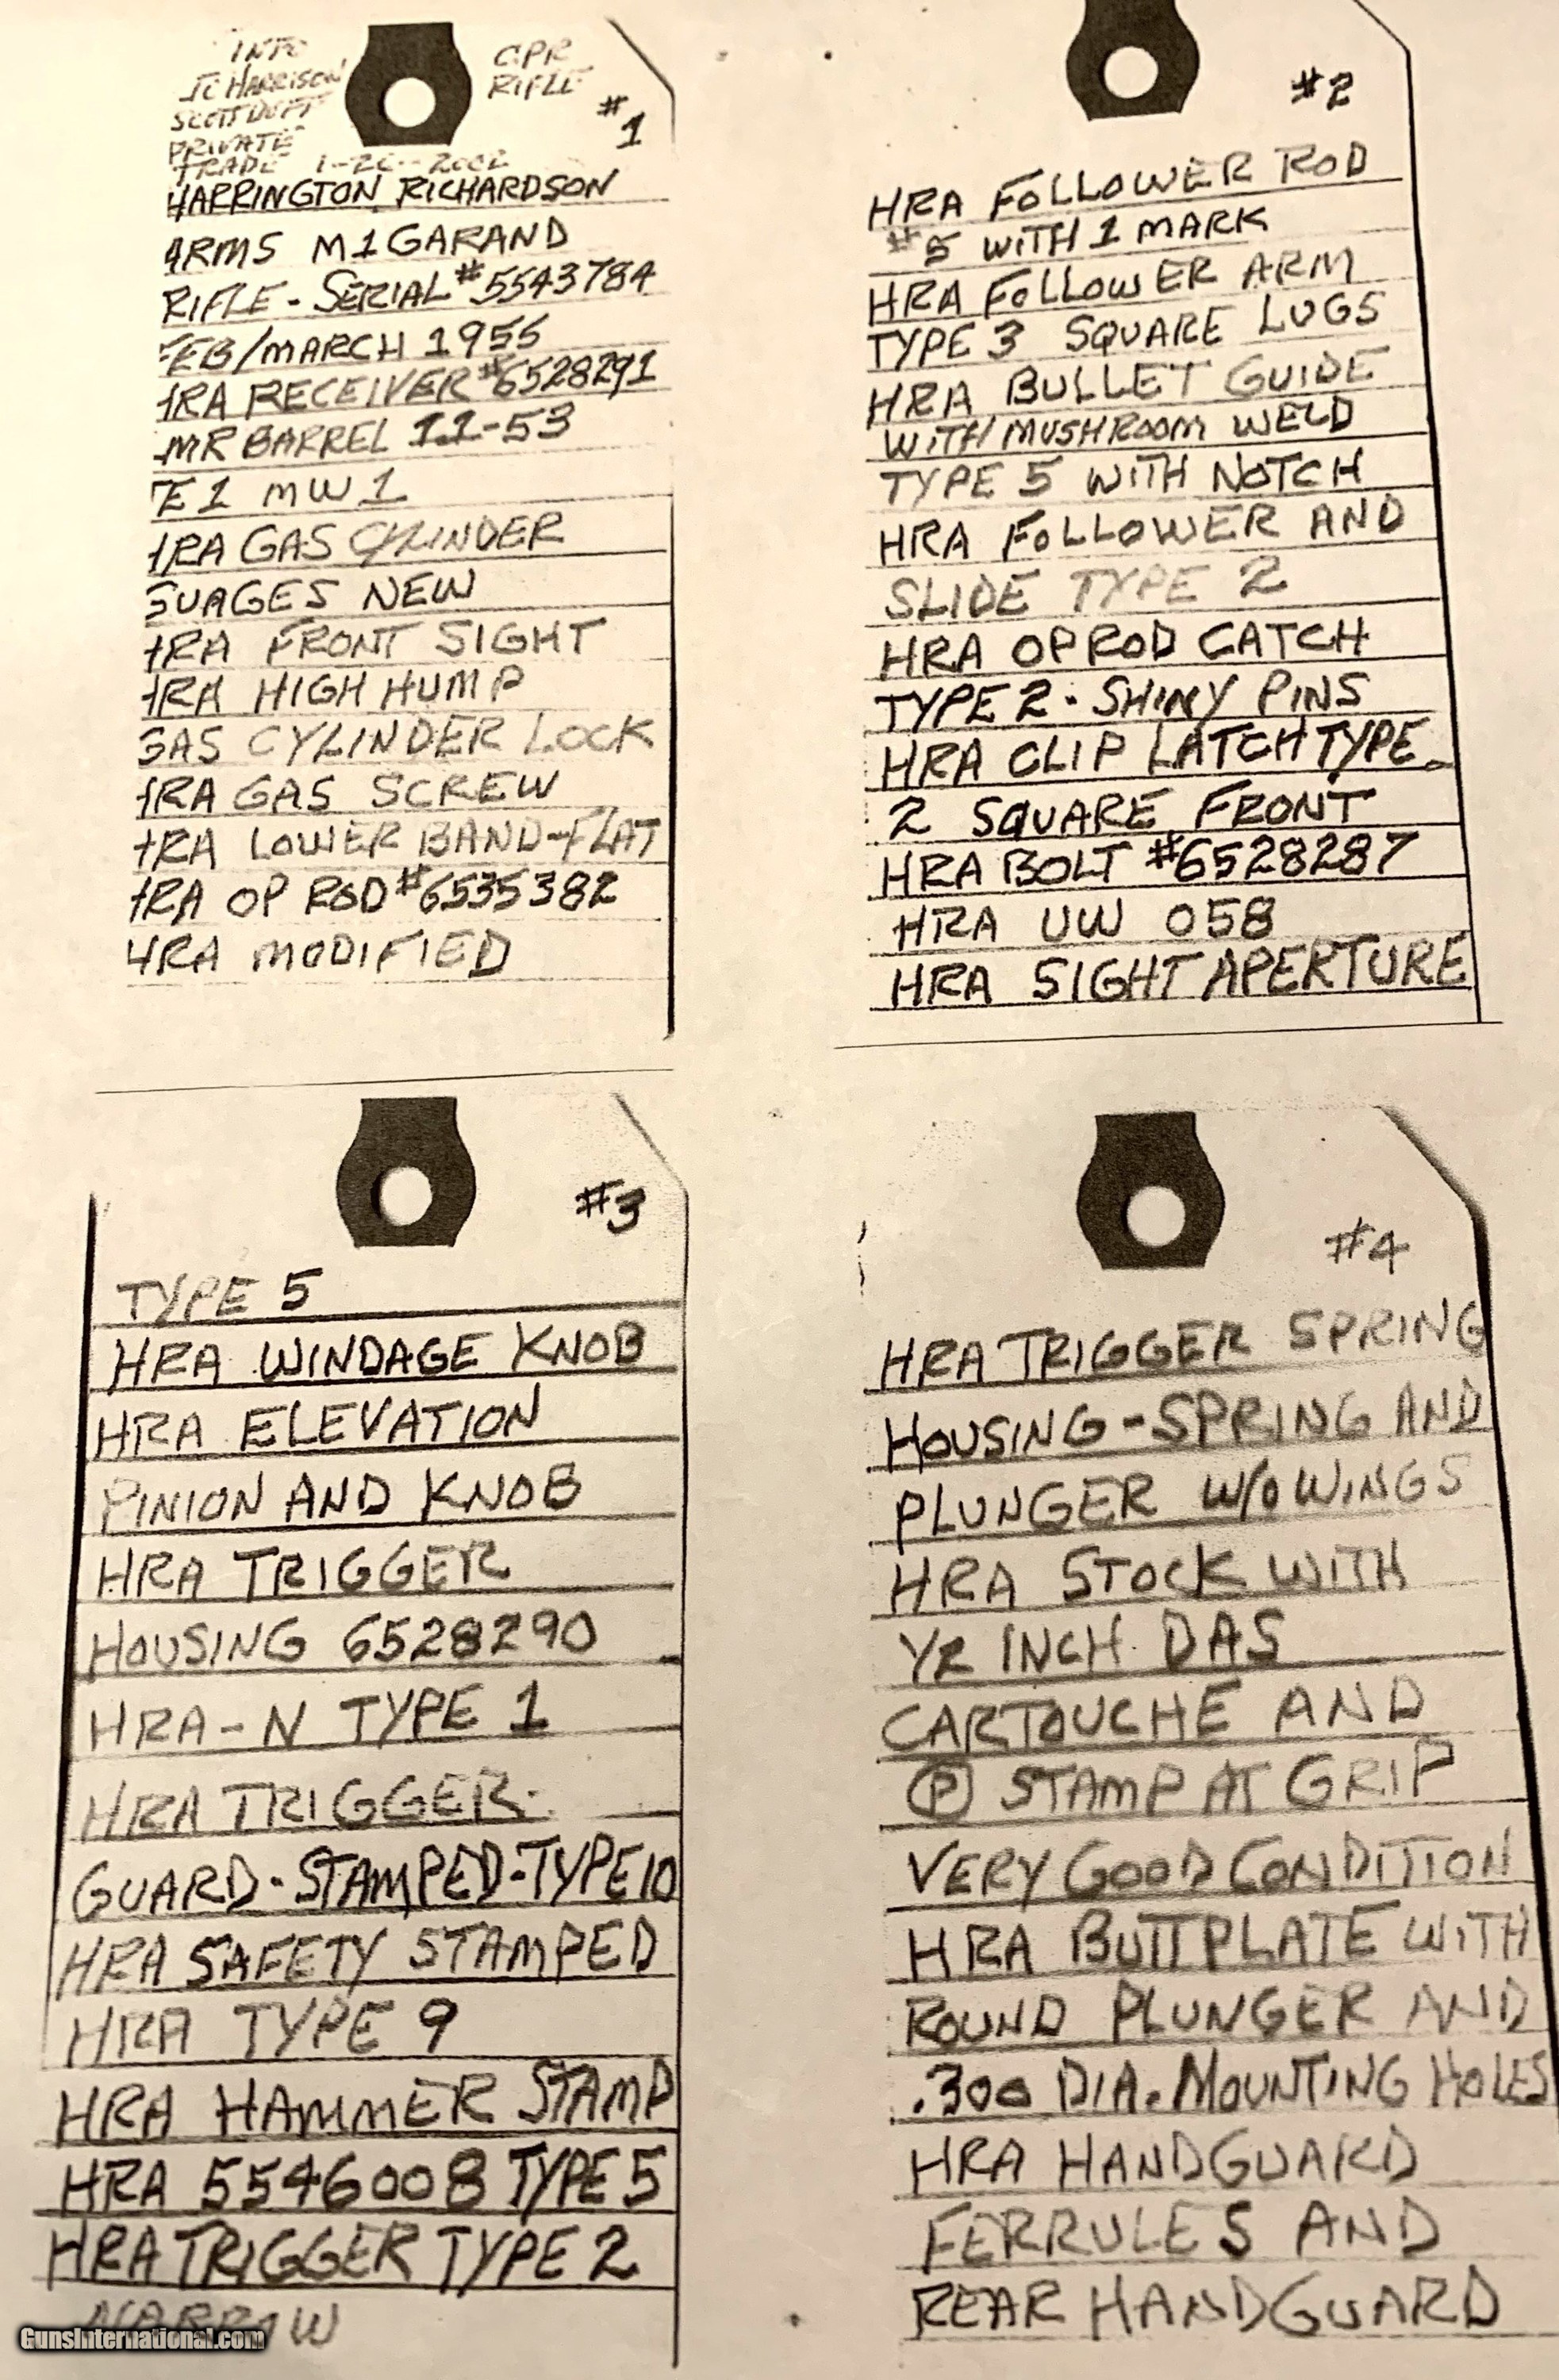 INFO
JC HARRISON
SCOTT DUFF
PRIVATE
TRADE 1-20-2002
CPR
RIFLE
#1
HARRINGTON RICHARDSON
ARMS M1GARAND
RIFLE - SERIAL #5543784
FEB/MARCH 1955
HRA RECEIVER #6528291
MR BARREL 11-53
TE1 MW1
HRA GAS CYLINDER
GUAGES NEW
HRA FRONT SIGHT
HRA HIGH HUMP
GAS CYLINDER LOCK
HRA GAS SCREW
HRA LOWER BAND-FLAT
HRA OP ROD #6535382
HRA MODIFIED
#2
HRA FOLLOWER ROD
#5 WITH 1 MARK
HRA FOLLOWER ARM
TYPE 3 SQUARE LUGS
HRA BULLET GUIDE
WITH MUSHROOM WELD
TYPE 5 WITH NOTCH
HRA FOLLOWER AND
SLIDE TYPE 2
HRA OPROD CATCH
TYPE 2 - SHINY PINS
HRA CLIP LATCH TYPE
2 SQUARE FRONT
HRA BOLT #6528287
HRA UW 058
HRA SIGHT APERTURE
#3
TYPE 5
HRA WINDAGE KNOB
HRA ELEVATION
PINION AND KNOB
HRA TRIGGER
HOUSING 6528290
HRA-N TYPE 1
HRA TRIGGER
GUARD-STAMPED-TYPE10
HRA SAFETY STAMPED
HRA TYPE 9
HRA HAMMER STAMP
HRA 5546008 TYPE 5
HRA TRIGGER TYPE 2
NARROW
#4
HRA TRIGGER SPRING
HOUSING-SPRING AND
PLUNGER W/O WINGS
HRA STOCK WITH
1/2 INCH DAS
CARTOUCHE AND
Ⓟ STAMP AT GRIP
VERY GOOD CONDITION
HRA BUTTPLATE WITH
ROUND PLUNGER AND
.300 DIA. MOUNTING HOLES
HRA HANDGUARD
FERRULES AND
REAR HANDGUARD
GunsInternational.com